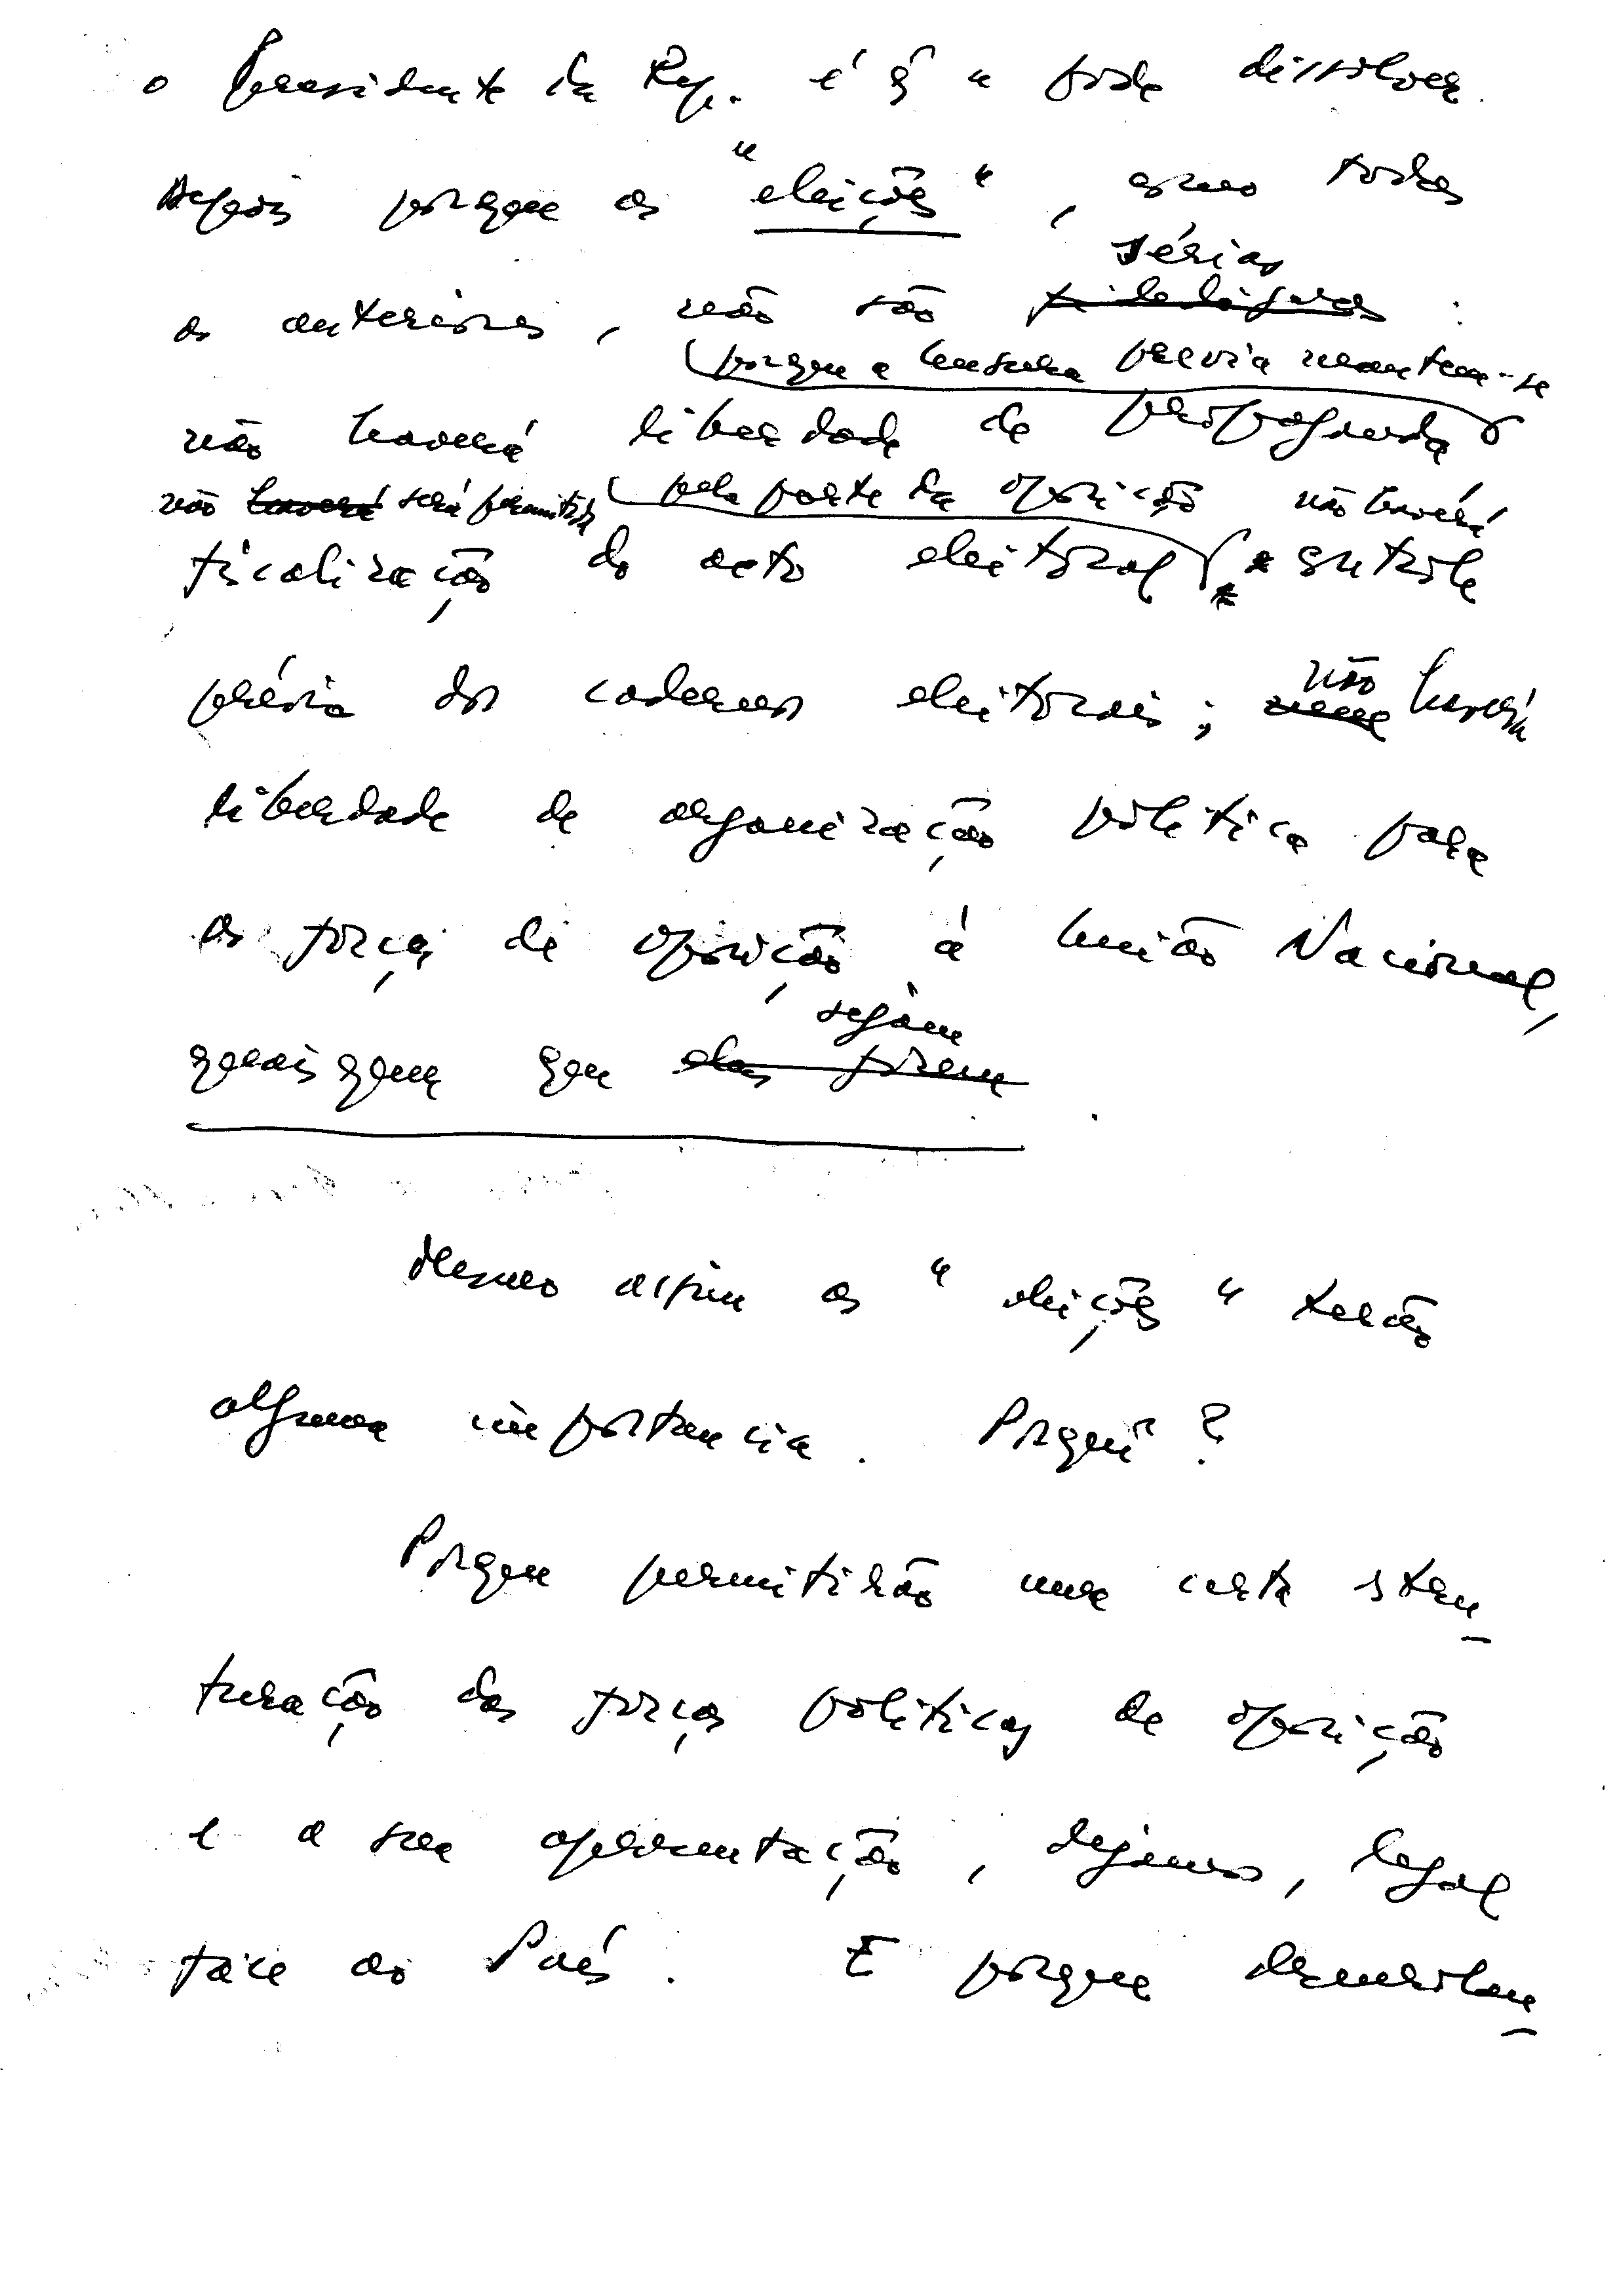 o Presidente da Rep. é q̃ a pode dissolver.
Depois porque as "eleições", como todas
sérias
as anteriores, não são :
porque a censura prévia mantem-se
não haverá liberdade de propaganda
não haverá será permitida pela parte da oposição não haverá
fiscalização do acto eleitoral controle
prévio dos cadernos eleitorais; não haverá
liberdade de organização política para
as forças de oposição à União Nacional,
sejam
quaisquer que elas forem.
Mesmo assim as "eleições" terão
alguma importancia. Porquê?
Porque permitirão uma certa estru-
turação das forças politicas de oposição
e a sua apresentação, digamos, legal
face ao País. E porque demonstram-